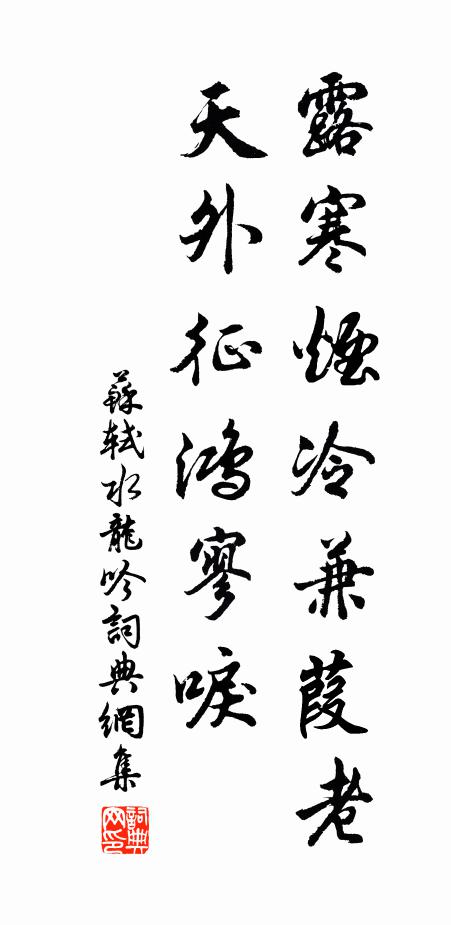 露寒煙冷兼葭老
天外征鴻寥唳
蘇軾水龍吟詞典網集
詞典網印